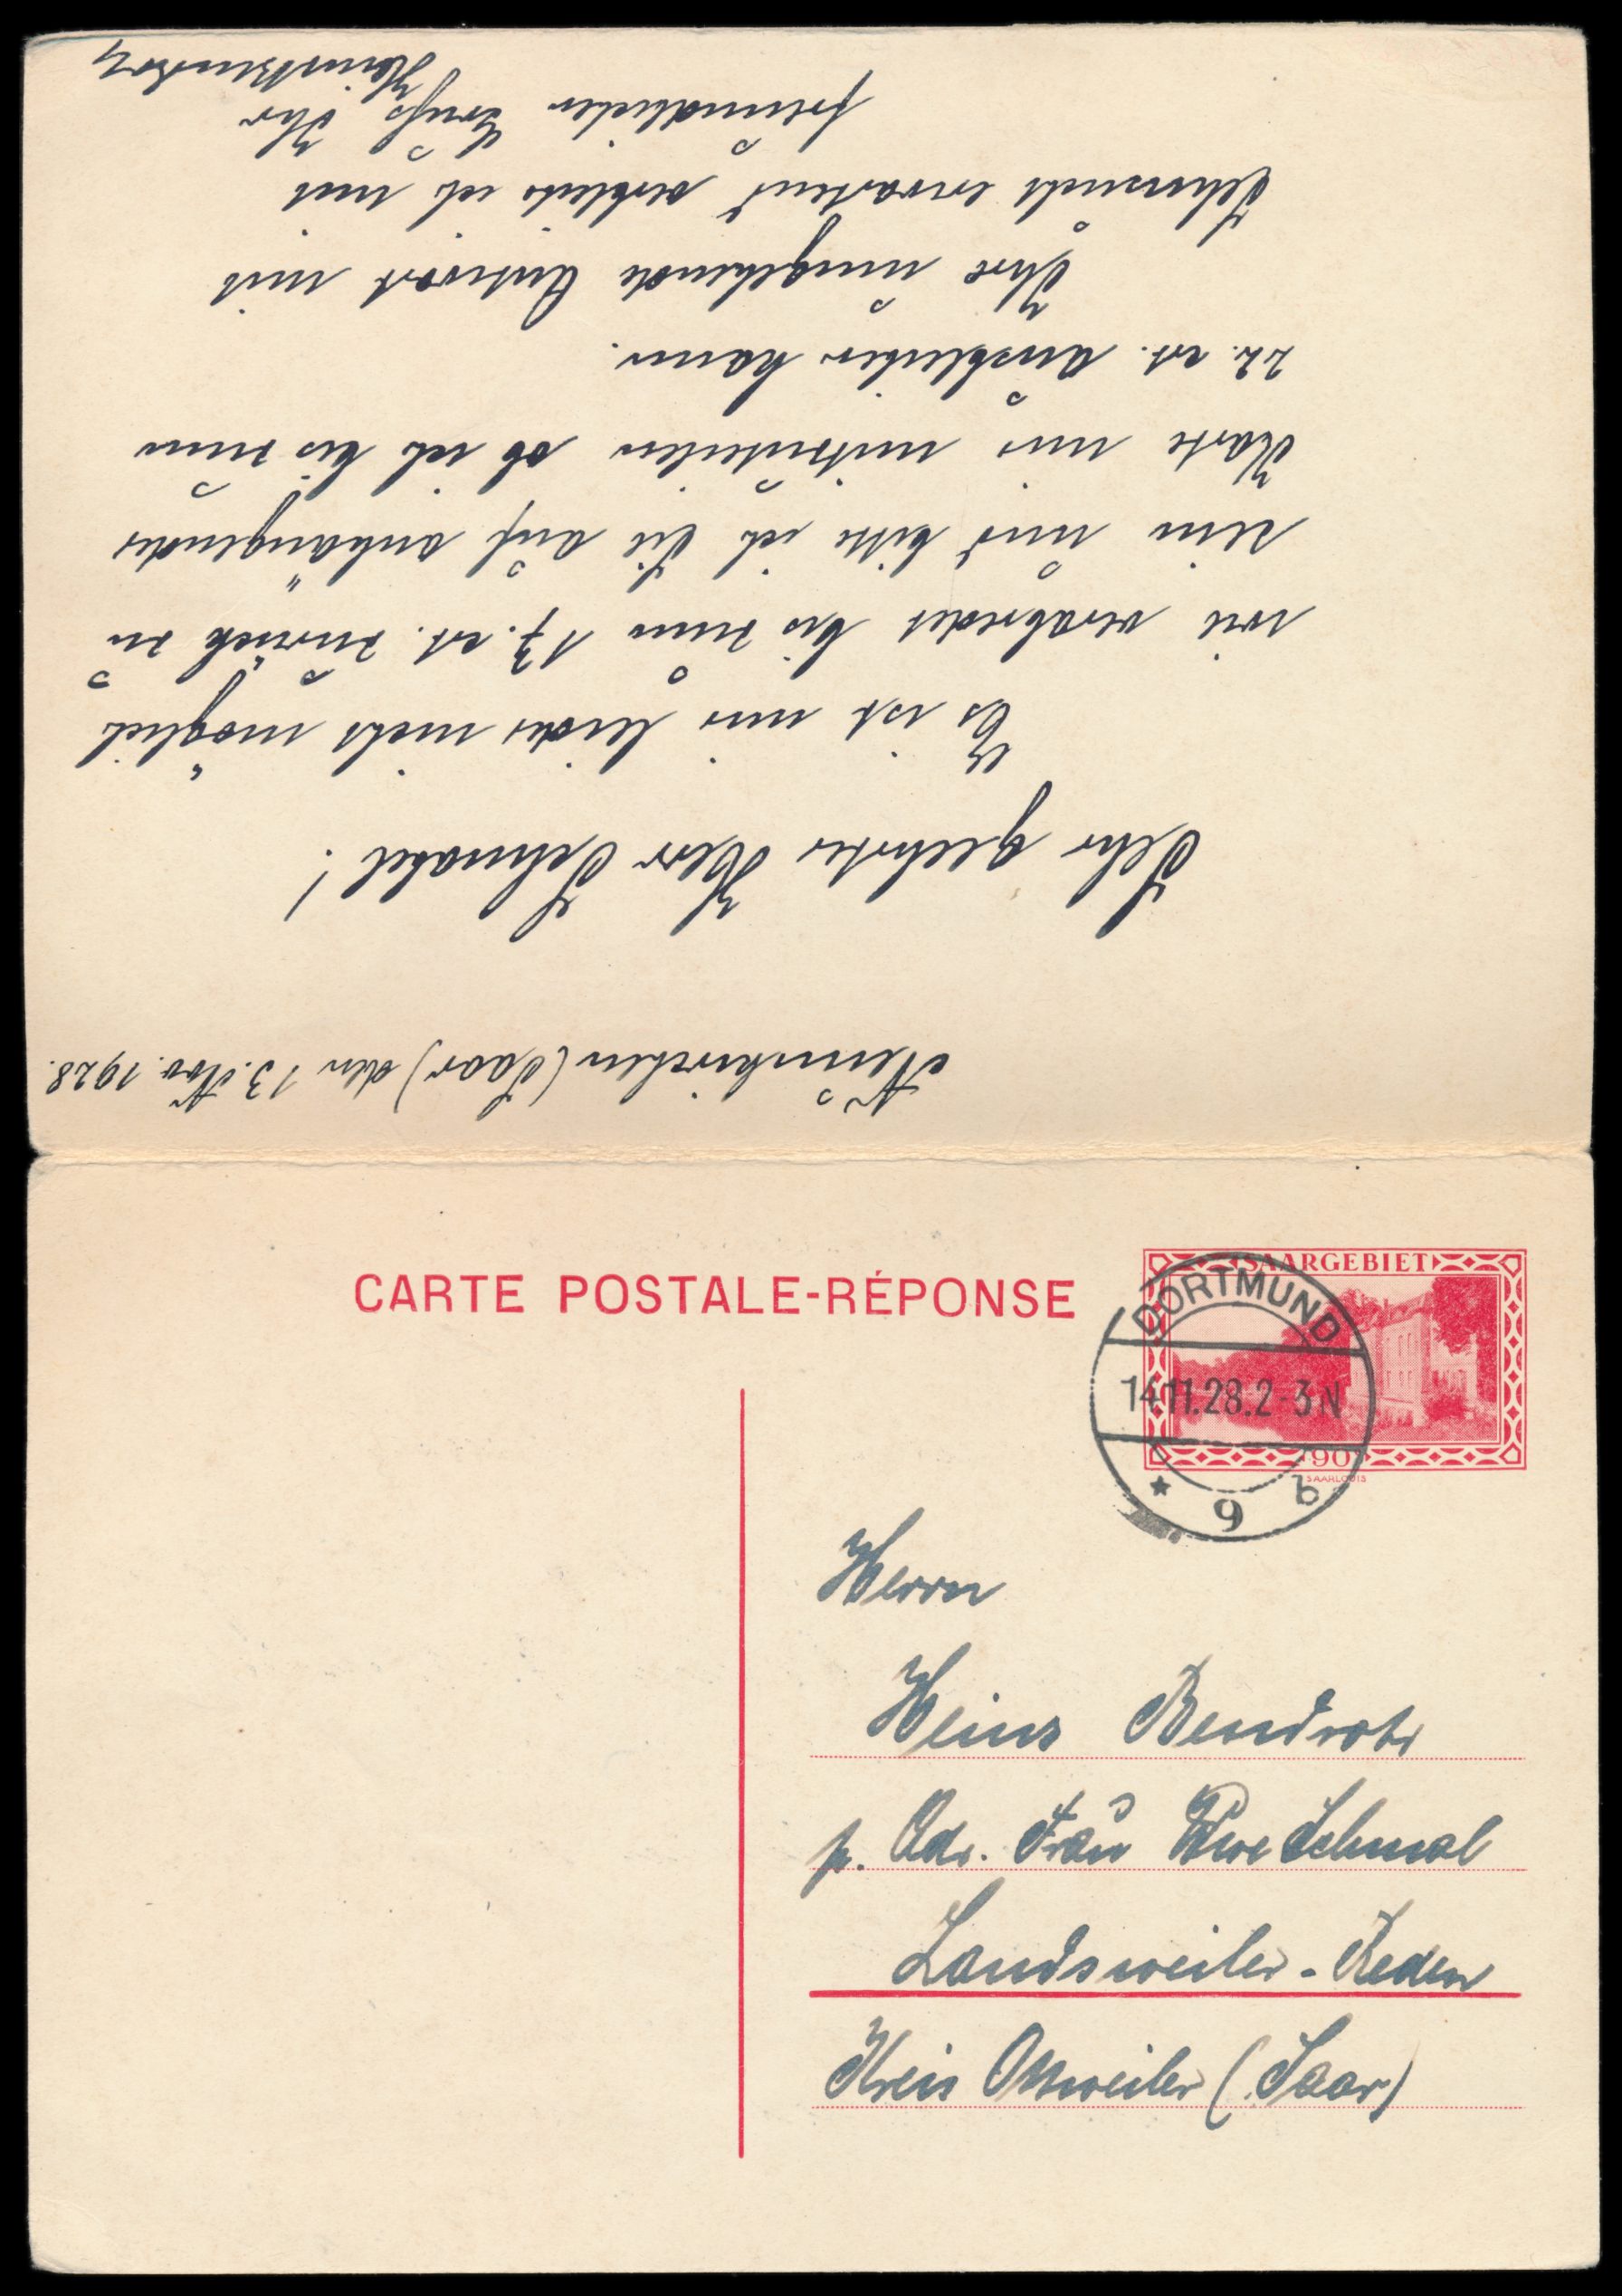 Neunkirchen (Saar) den 13. Nov. 1928.
Sehr geehrter Herr Schnabel!
Es ist mir leider nicht möglich
wie verabredet bis zum 17. ct. zurück zu
sein und bitte ich Sie auf anhängender
Karte mir mitzuteilen ob ich bis zum
22. ct. ausbleiben kann.
Ihre umgehende Antwort mit
Sehnsucht erwartend verbleibe ich mit
freundlichen Gruß Ihr
CARTE POSTALE-RÉPONSE
SAARGEBIET
90
SAARLOUIS
DORTMUND
14.11.28.2-3N
* 9 b
Herrn
Heinz Bendrat
p. Adr. Frau Wwe Schmal
Landsweiler-Reden
Kreis Ottweiler (Saar)